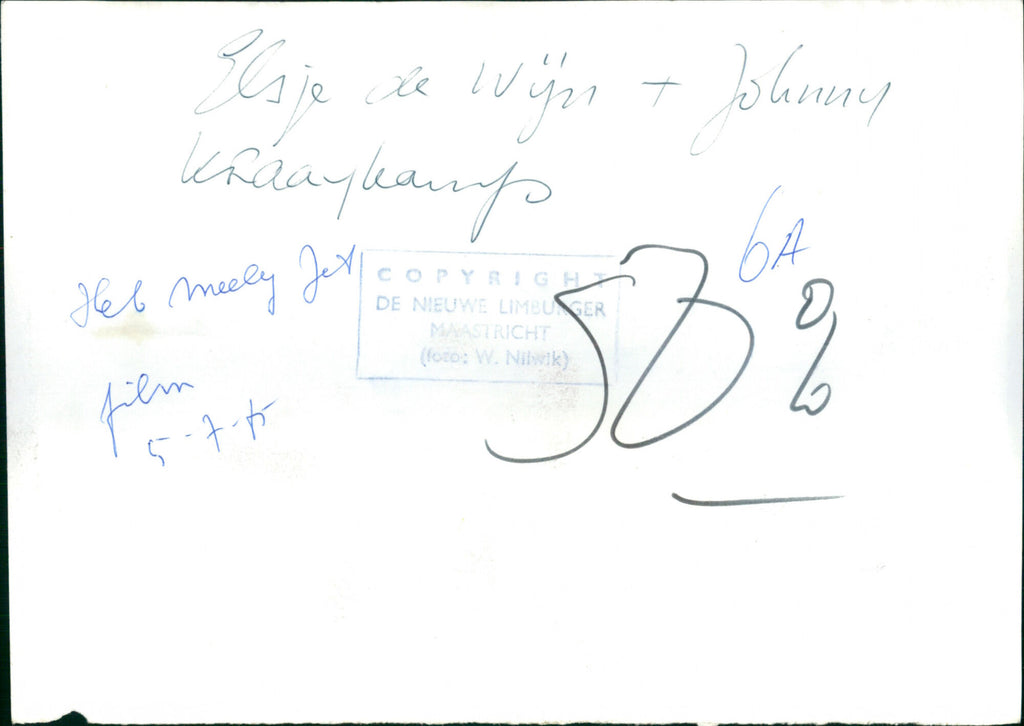 Elsje de Wijn + Johnny
Kraaykamp
Heb meely Jet
6A
COPYRIGHT
DE NIEUWE LIMBURGER
MAASTRICHT
(foto: W. Nilwik)
film
5-7-75